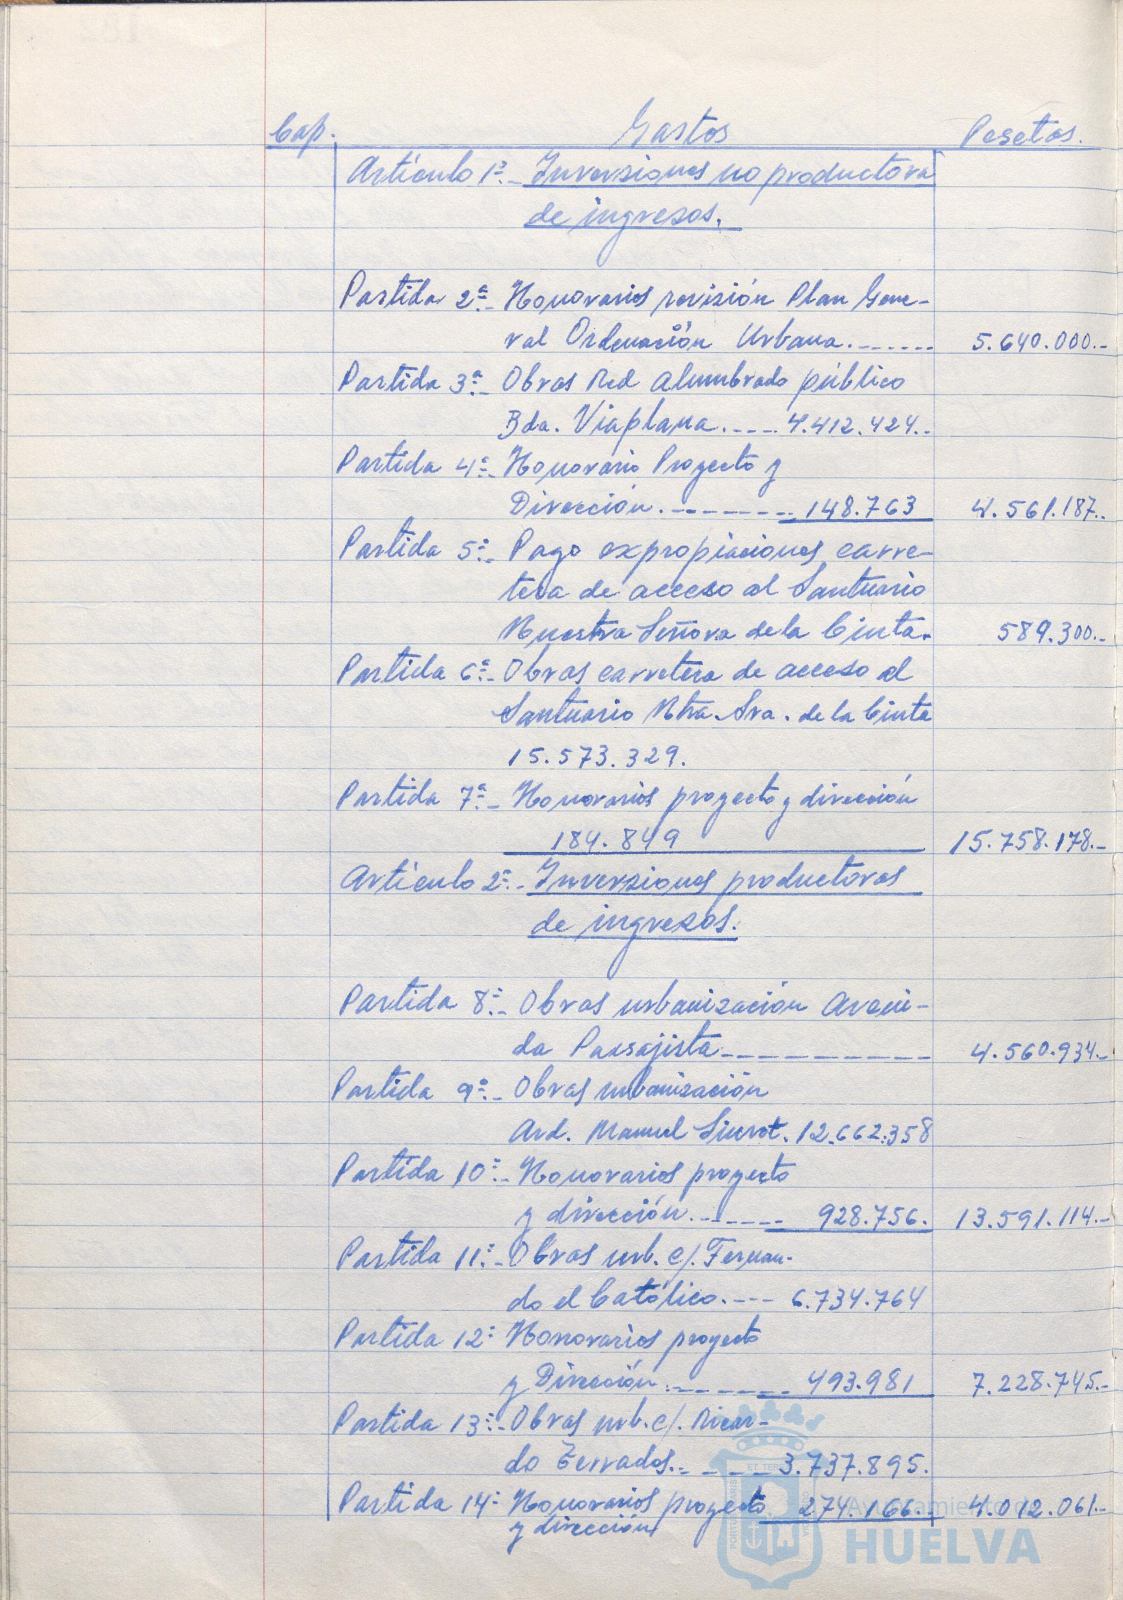 Cap. Gastos Pesetas.
Artículo 1º.- Inversiones no productora
de ingresos.
Partida 2ª.- Honorarios revisión Plan Gene-
ral Ordenación Urbana.------- 5.640.000.-
Partida 3ª.- Obras Red alumbrado público
Bda. Viaplana.---- 4.412.424.-
Partida 4ª.- Honorario Proyecto y
Dirección.--------- 148.763 4.561.187.-
Partida 5ª.- Pago expropiaciones carre-
tera de acceso al Santuario
Nuestra Señora de la Cinta. 589.300.-
Partida 6ª.- Obras carretera de acceso al
Santuario Ntra. Sra. de la Cinta
15.573.329.
Partida 7ª.- Honorarios proyecto y dirección
184.849 15.758.178.-
Artículo 2º.- Inversiones productoras
de ingresos.
Partida 8ª.- Obras urbanización Aveni-
da Paisajista----------- 4.560.934.-
Partida 9ª.- Obras urbanización
Avd. Manuel Siurot. 12.662.358
Partida 10ª.- Honorarios proyecto
y dirección.------ 928.756. 13.591.114.-
Partida 11ª.- Obras urb. c/. Fernan-
do el Católico.--- 6.734.764
Partida 12ª Honorarios proyecto
y Dirección.------- 493.981 7.228.745.-
Partida 13ª.- Obras urb. c/. Ricar-
do Terrados.----- 3.737.895.
Partida 14ª Honorarios proyecto 274.166.- 4.012.061.-
y dirección
Ayuntamiento de
HUELVA